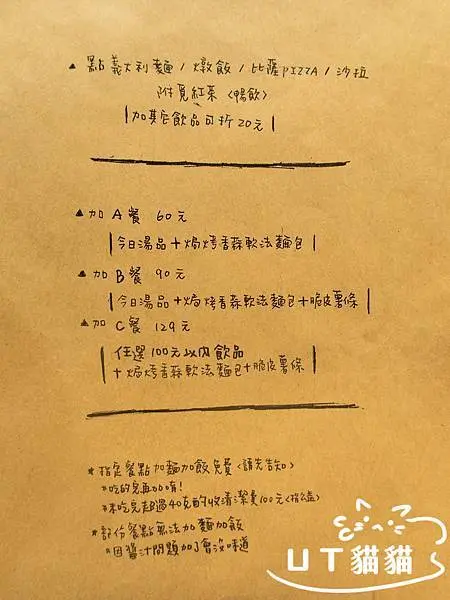 ▲ 點義大利麵/燉飯/比薩PIZZA/沙拉
附覓紅茶〈暢飲〉
|加其它飲品可折20元|
▲加 A 餐 60元
|今日湯品+焗烤香蒜軟法麵包|
▲加 B 餐 90元
|今日湯品+焗烤香蒜軟法麵包+脆皮薯條|
▲加 C 餐 129元
|任選100元以內飲品
+焗烤香蒜軟法麵包+脆皮薯條|
*指定餐點加麵加飯免費〈請先告知〉
吃的完再加唷!
未吃完超過40克酌收清潔費100元〈指公益〉
*部份餐點無法加麵加飯
因醬汁問題加了會沒味道
UT貓貓